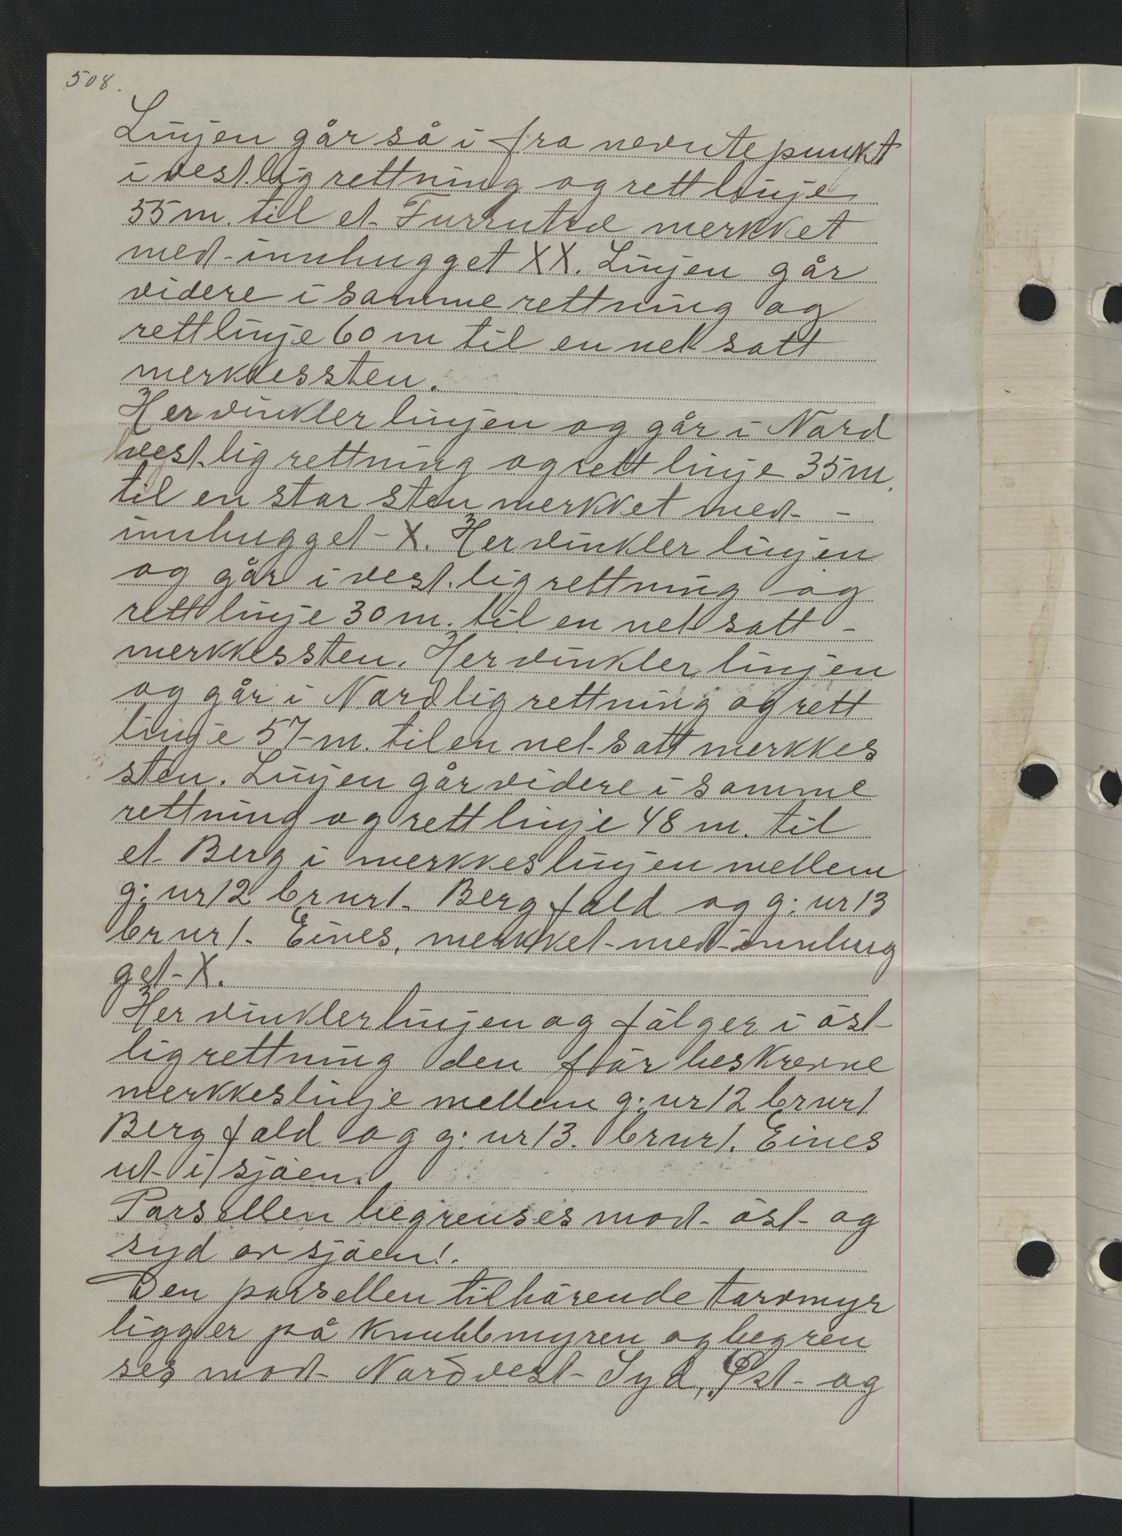 508.
Linjen går så i fra nevnte punkt
i vestlig rettning og rett linje
55 m. til et Furrutre merkket
med innhugget XX. Linjen går
videre i samme rettning og
rettlinje 60 m til en net satt
merkkessten.
Her vinkler linjen og går i Nord
vestlig rettning og rett linje 35 m.
til en stor sten merkket med -
innhugget - X. Her vinkler linjen
og går i vestlig rettning og
rett linje 30 m. til en net satt -
merkkessten. Her vinkler linjen
og går i Nordlig rettning og rett
linje 57 m. til en net satt merkkes
sten. Linjen går videre i samme
rettning og rett linje 48 m. til
et Berg i merkkeslinjen mellem
g: nr 12 br nr 1. Bergfald og g: nr 13
br nr 1. Eines, merkket med innhug
get - X.
Her vinkler linjen og fölger i öst-
lig rettning den för beskrevne
merkkeslinje mellem g: nr 12 br nr 1
Bergfald og g: nr 13. br nr 1. Eines
ut i sjöen.
Parsellen begrenses mod öst og
syd av sjöen!.
Den parsellen tilhörende torvmyr
ligger på Knubbmyren og begren
ses mod Nordvest Syd, Øst og